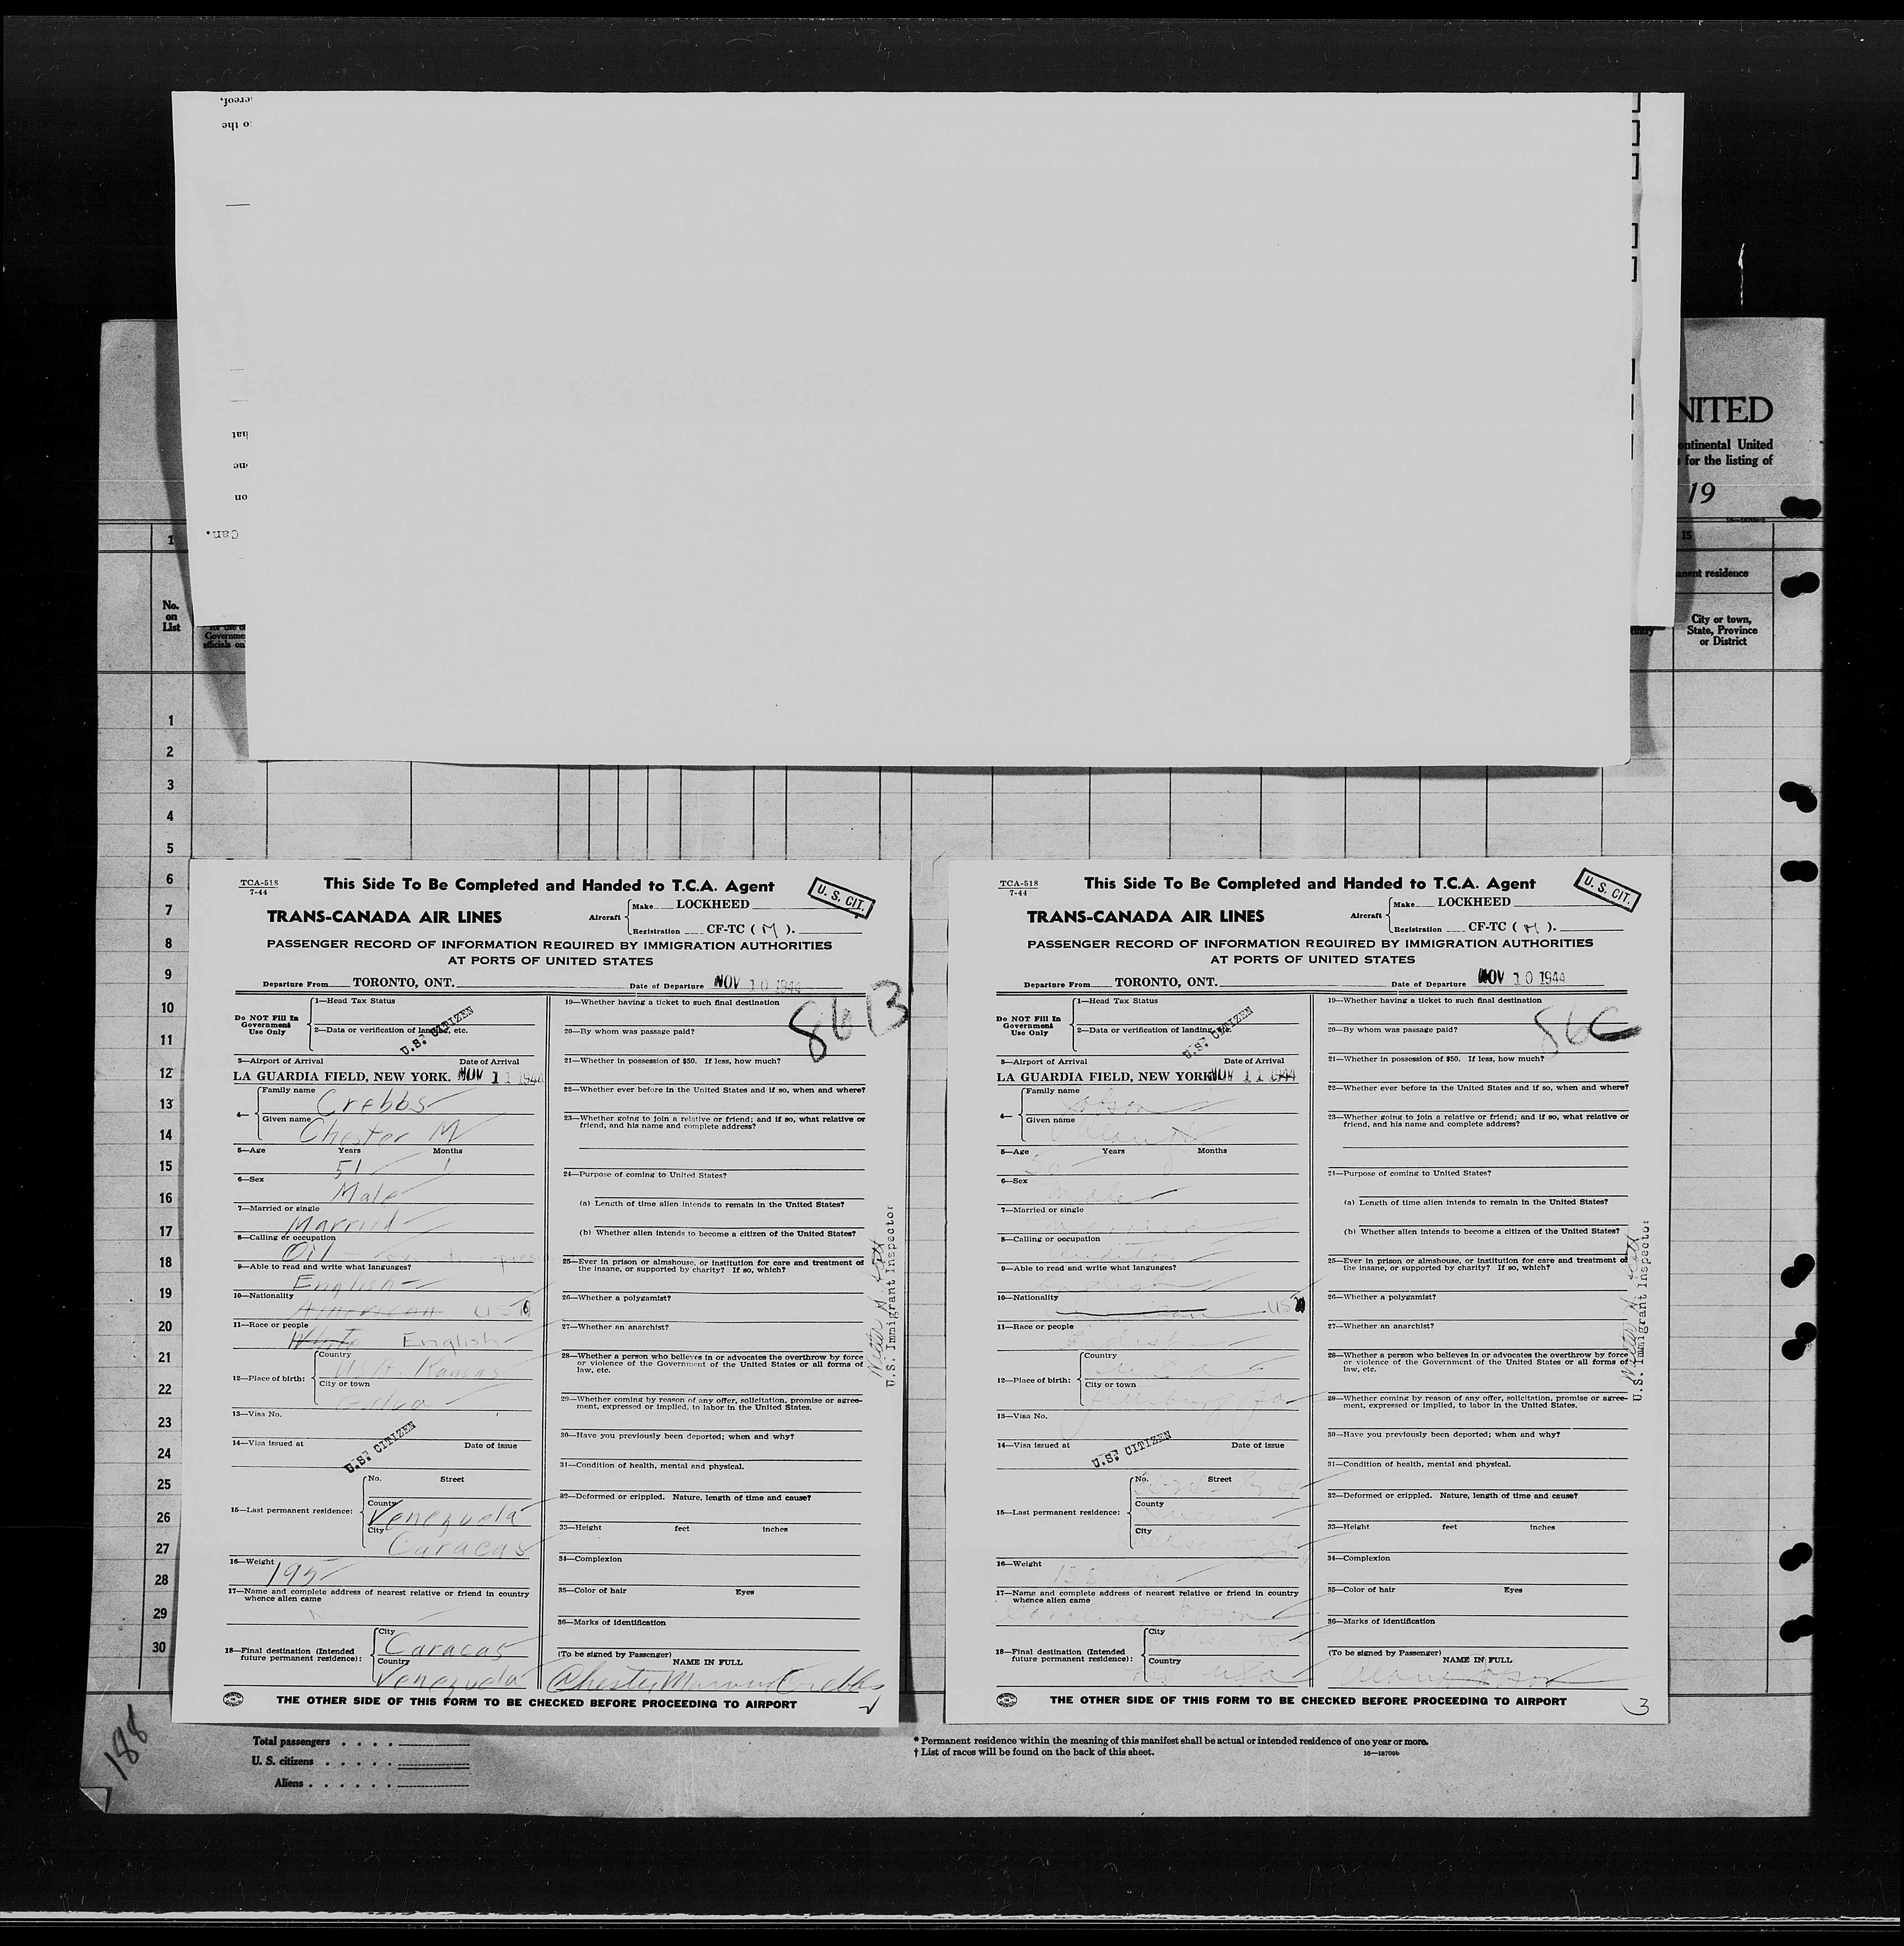 ereof,
o the
hat
one
on
Can.
NITED
ontinental United
for the listing of
19
1
15
anent residence
No.
on
List
Governme
officials on
City or town,
State, Province
or District
1
2
3
4
5
6
7
8
9
10
11
12
13
14
15
16
17
18
19
20
21
22
23
24
25
26
27
28
29
30
TCA-518
7-44
This Side To Be Completed and Handed to T.C.A. Agent
U. S. CIT.
TRANS-CANADA AIR LINES
Aircraft
Make LOCKHEED
Registration CF-TC ( M ).
PASSENGER RECORD OF INFORMATION REQUIRED BY IMMIGRATION AUTHORITIES
AT PORTS OF UNITED STATES
Departure From TORONTO, ONT. Date of Departure NOV 10 1944
86 B
Do NOT Fill In
Government
Use Only
1—Head Tax Status
2—Data or verification of landing, etc.
U.S. CITIZEN
3—Airport of Arrival Date of Arrival
LA GUARDIA FIELD, NEW YORK. NOV 11 1944
4—
Family name
Crebbs
Given name
Chester M
5—Age Years Months
51 1
6—Sex
Male
7—Married or single
Married
8—Calling or occupation
Oil
9—Able to read and write what languages?
English
10—Nationality
American USA
11—Race or people
White English
12—Place of birth:
Country
Kansas
City or town
13—Visa No.
14—Visa issued at Date of issue
U.S. CITIZEN
15—Last permanent residence:
No. Street
County
Venezuela
City
Caracas
16—Weight
195
17—Name and complete address of nearest relative or friend in country
whence alien came
18—Final destination (Intended
future permanent residence):
City
Caracas
Country
Venezuela
19—Whether having a ticket to such final destination
20—By whom was passage paid?
21—Whether in possession of $50. If less, how much?
22—Whether ever before in the United States and if so, when and where?
23—Whether going to join a relative or friend; and if so, what relative or
friend, and his name and complete address?
24—Purpose of coming to United States?
(a) Length of time alien intends to remain in the United States?
(b) Whether alien intends to become a citizen of the United States?
25—Ever in prison or almshouse, or institution for care and treatment of
the insane, or supported by charity? If so, which?
26—Whether a polygamist?
27—Whether an anarchist?
28—Whether a person who believes in or advocates the overthrow by force
or violence of the Government of the United States or all forms of
law, etc.
29—Whether coming by reason of any offer, solicitation, promise or agree-
ment, expressed or implied, to labor in the United States.
30—Have you previously been deported; when and why?
31—Condition of health, mental and physical.
32—Deformed or crippled. Nature, length of time and cause?
33—Height feet inches
34—Complexion
35—Color of hair Eyes
36—Marks of identification
(To be signed by Passenger)
NAME IN FULL
Chester Crebbs
U.S. Immigrant Inspector
THE OTHER SIDE OF THIS FORM TO BE CHECKED BEFORE PROCEEDING TO AIRPORT
TCA-518
7-44
This Side To Be Completed and Handed to T.C.A. Agent
U. S. CIT.
TRANS-CANADA AIR LINES
Aircraft
Make LOCKHEED
Registration CF-TC ( M ).
PASSENGER RECORD OF INFORMATION REQUIRED BY IMMIGRATION AUTHORITIES
AT PORTS OF UNITED STATES
Departure From TORONTO, ONT. Date of Departure NOV 10 1944
86 C
Do NOT Fill In
Government
Use Only
1—Head Tax Status
2—Data or verification of landing,
U.S. CITIZEN
3—Airport of Arrival Date of Arrival
LA GUARDIA FIELD, NEW YORK NOV 11 1944
4—
Family name
Given name
5—Age Years Months
6—Sex
Male
7—Married or single
Married
8—Calling or occupation
Auditor
9—Able to read and write what languages?
English
10—Nationality
USA
11—Race or people
12—Place of birth:
Country
City or town
13—Visa No.
14—Visa issued at Date of issue
U.S. CITIZEN
15—Last permanent residence:
No. Street
County
City
16—Weight
17—Name and complete address of nearest relative or friend in country
whence alien came
18—Final destination (Intended
future permanent residence):
City
Country
USA
19—Whether having a ticket to such final destination
20—By whom was passage paid?
21—Whether in possession of $50. If less, how much?
22—Whether ever before in the United States and if so, when and where?
23—Whether going to join a relative or friend; and if so, what relative or
friend, and his name and complete address?
24—Purpose of coming to United States?
(a) Length of time alien intends to remain in the United States?
(b) Whether alien intends to become a citizen of the United States?
25—Ever in prison or almshouse, or institution for care and treatment of
the insane, or supported by charity? If so, which?
26—Whether a polygamist?
27—Whether an anarchist?
28—Whether a person who believes in or advocates the overthrow by force
or violence of the Government of the United States or all forms of
law, etc.
29—Whether coming by reason of any offer, solicitation, promise or agree-
ment, expressed or implied, to labor in the United States.
30—Have you previously been deported; when and why?
31—Condition of health, mental and physical.
32—Deformed or crippled. Nature, length of time and cause?
33—Height feet inches
34—Complexion
35—Color of hair Eyes
36—Marks of identification
(To be signed by Passenger)
NAME IN FULL
U.S. Immigrant Inspector
THE OTHER SIDE OF THIS FORM TO BE CHECKED BEFORE PROCEEDING TO AIRPORT
3
188
Total passengers
U. S. citizens
Aliens
* Permanent residence within the meaning of this manifest shall be actual or intended residence of one year or more.
† List of races will be found on the back of this sheet.
16—18709b